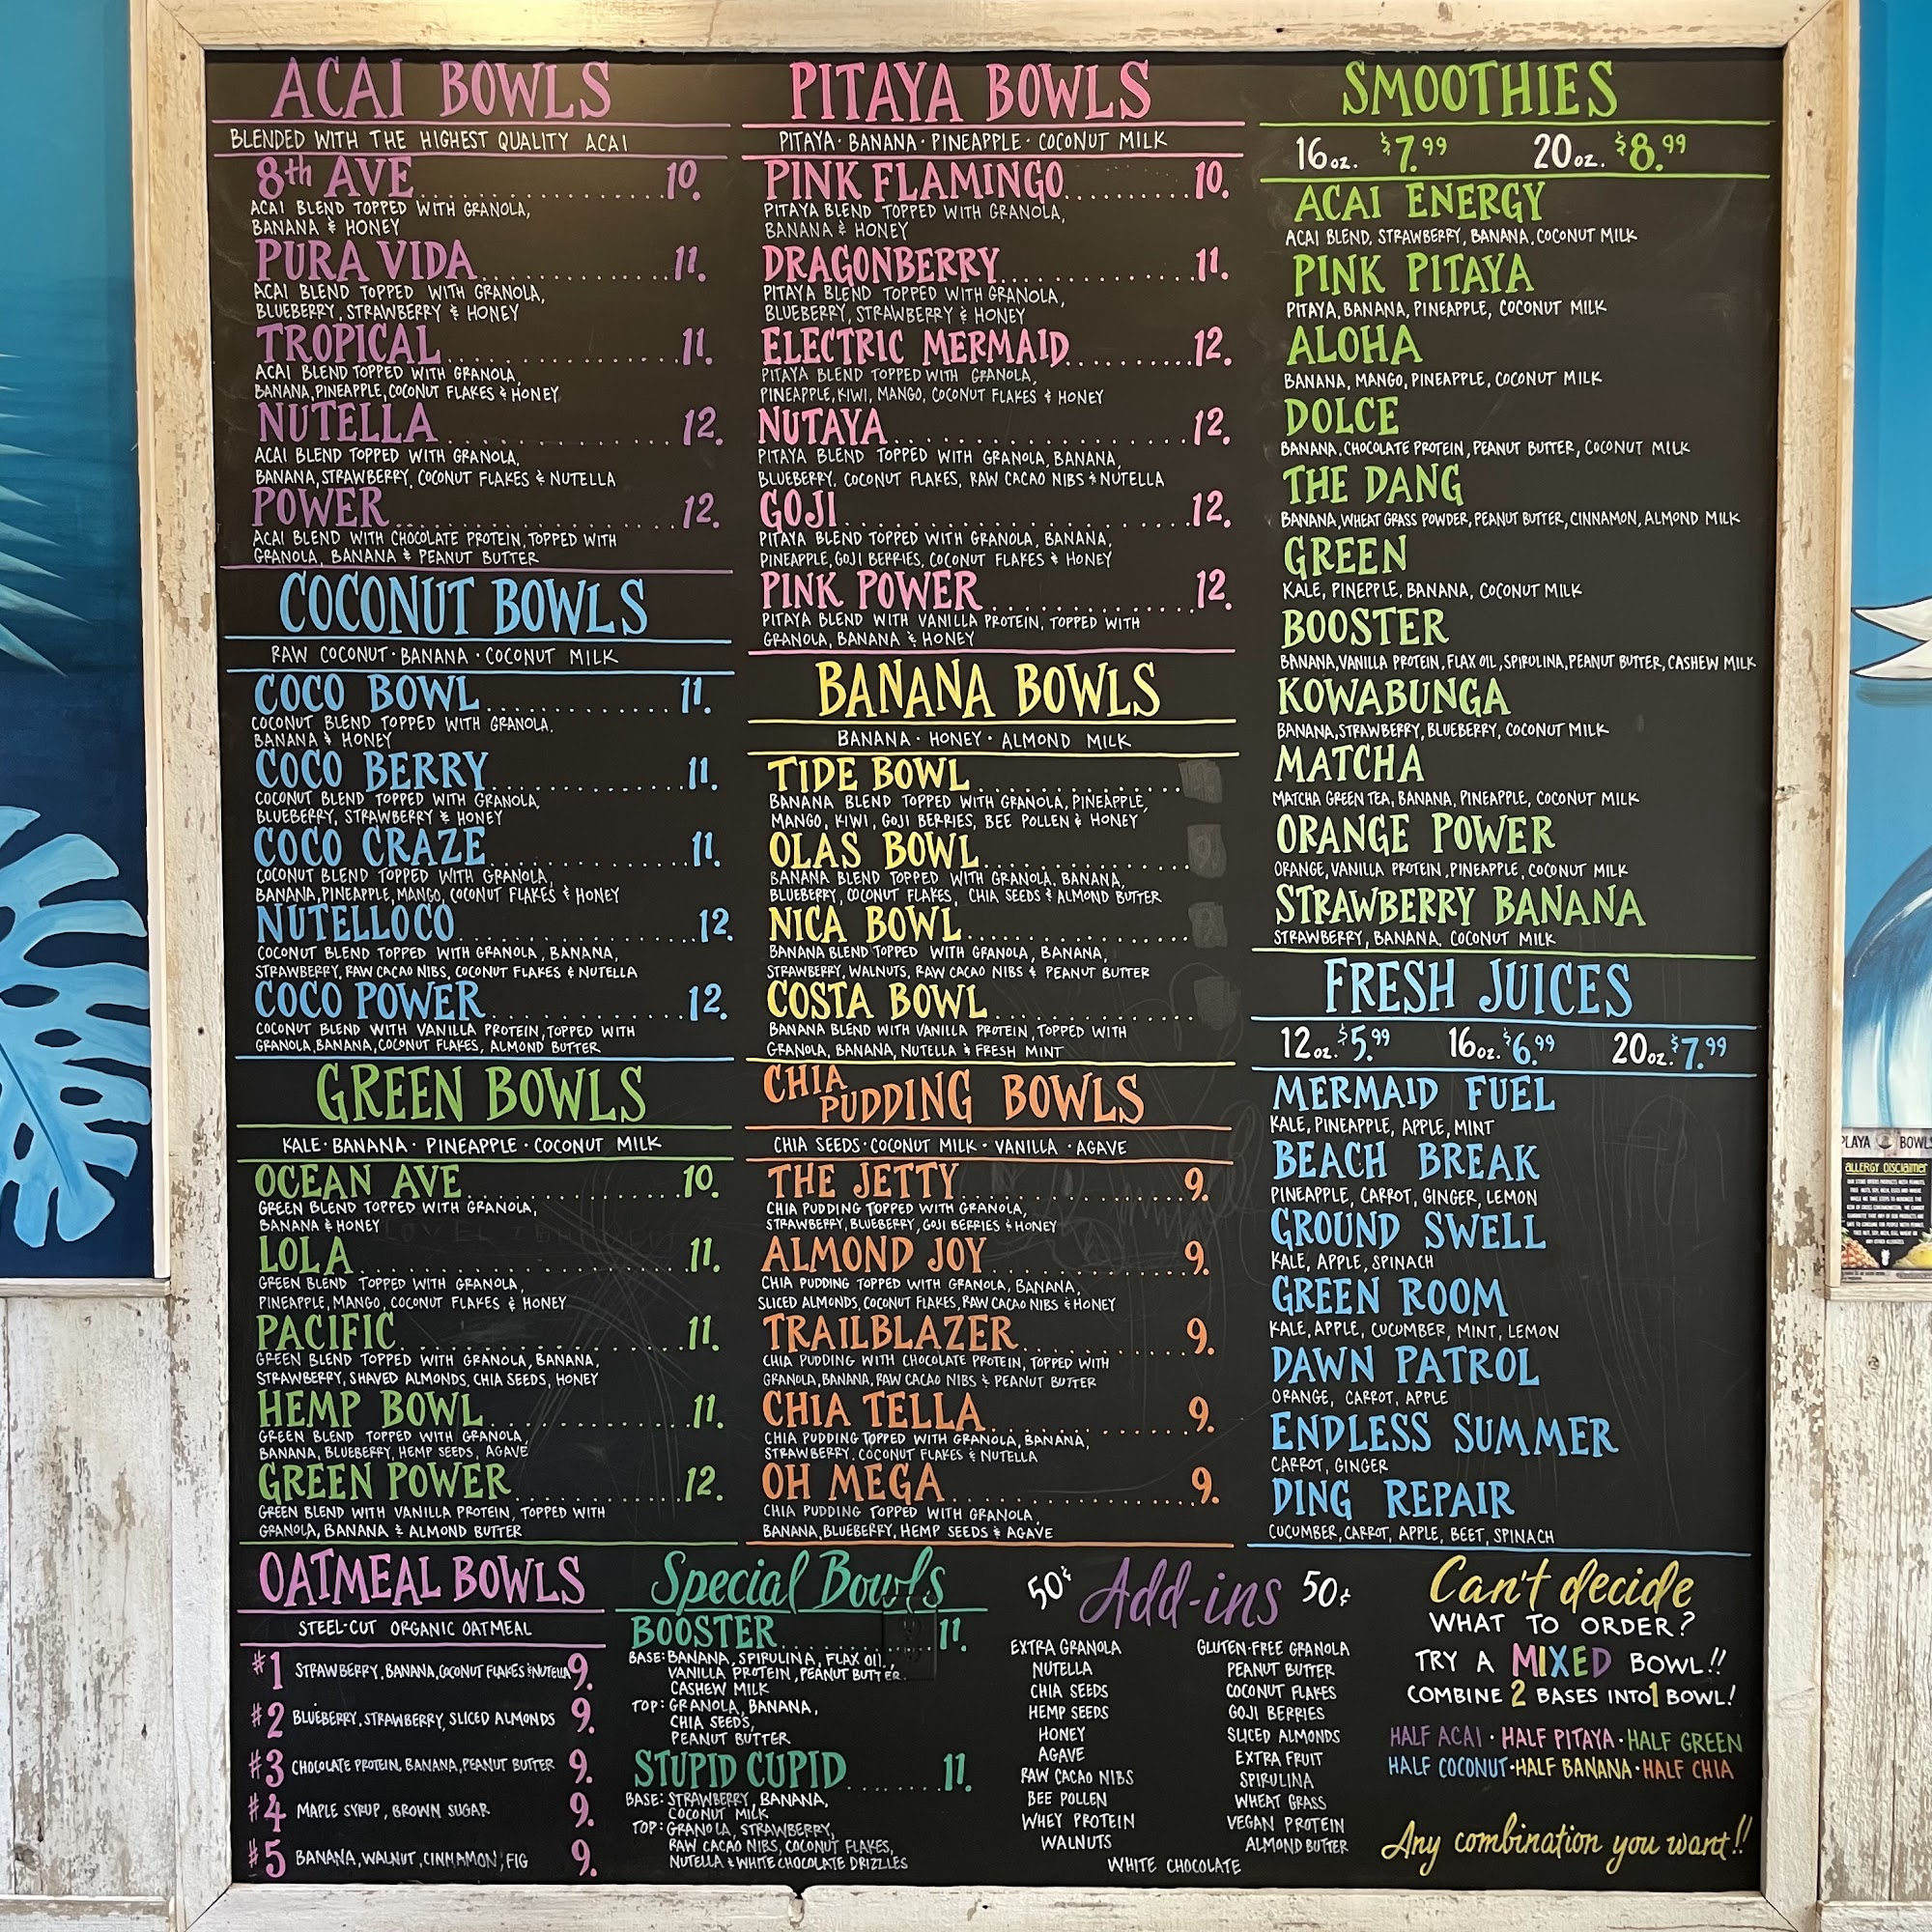 ACAI BOWLS
BLENDED WITH THE HIGHEST QUALITY ACAI
8th AVE 10.
ACAI BLEND TOPPED WITH GRANOLA,
BANANA & HONEY
PURA VIDA 11.
ACAI BLEND TOPPED WITH GRANOLA,
BLUEBERRY, STRAWBERRY & HONEY
TROPICAL 11.
ACAI BLEND TOPPED WITH GRANOLA,
BANANA, PINEAPPLE, COCONUT FLAKES & HONEY
NUTELLA 12.
ACAI BLEND TOPPED WITH GRANOLA,
BANANA, STRAWBERRY, COCONUT FLAKES & NUTELLA
POWER 12.
ACAI BLEND WITH CHOCOLATE PROTEIN, TOPPED WITH
GRANOLA, BANANA & PEANUT BUTTER
COCONUT BOWLS
RAW COCONUT · BANANA · COCONUT MILK
COCO BOWL 11.
COCONUT BLEND TOPPED WITH GRANOLA.
BANANA & HONEY
COCO BERRY 11.
COCONUT BLEND TOPPED WITH GRANOLA,
BLUEBERRY, STRAWBERRY & HONEY
COCO CRAZE 11.
COCONUT BLEND TOPPED WITH GRANOLA,
BANANA, PINEAPPLE, MANGO, COCONUT FLAKES & HONEY
NUTELLOCO 12.
COCONUT BLEND TOPPED WITH GRANOLA, BANANA,
STRAWBERRY, RAW CACAO NIBS, COCONUT FLAKES & NUTELLA
COCO POWER 12.
COCONUT BLEND WITH VANILLA PROTEIN, TOPPED WITH
GRANOLA, BANANA, COCONUT FLAKES, ALMOND BUTTER
GREEN BOWLS
KALE · BANANA · PINEAPPLE · COCONUT MILK
OCEAN AVE 10.
GREEN BLEND TOPPED WITH GRANOLA,
BANANA & HONEY
LOLA 11.
GREEN BLEND TOPPED WITH GRANOLA,
PINEAPPLE, MANGO, COCONUT FLAKES & HONEY
PACIFIC 11.
GREEN BLEND TOPPED WITH GRANOLA, BANANA,
STRAWBERRY, SHAVED ALMONDS, CHIA SEEDS, HONEY
HEMP BOWL 11.
GREEN BLEND TOPPED WITH GRANOLA,
BANANA, BLUEBERRY, HEMP SEEDS, AGAVE
GREEN POWER 12.
GREEN BLEND WITH VANILLA PROTEIN, TOPPED WITH
GRANOLA, BANANA & ALMOND BUTTER
PITAYA BOWLS
PITAYA · BANANA · PINEAPPLE · COCONUT MILK
PINK FLAMINGO 10.
PITAYA BLEND TOPPED WITH GRANOLA,
BANANA & HONEY
DRAGONBERRY 11.
PITAYA BLEND TOPPED WITH GRANOLA,
BLUEBERRY, STRAWBERRY & HONEY
ELECTRIC MERMAID 12.
PITAYA BLEND TOPPED WITH GRANOLA,
PINEAPPLE, KIWI, MANGO, COCONUT FLAKES & HONEY
NUTAYA 12.
PITAYA BLEND TOPPED WITH GRANOLA, BANANA,
BLUEBERRY, COCONUT FLAKES, RAW CACAO NIBS & NUTELLA
GOJI 12.
PITAYA BLEND TOPPED WITH GRANOLA, BANANA,
PINEAPPLE, GOJI BERRIES, COCONUT FLAKES & HONEY
PINK POWER 12.
PITAYA BLEND WITH VANILLA PROTEIN, TOPPED WITH
GRANOLA, BANANA & HONEY
BANANA BOWLS
BANANA · HONEY · ALMOND MILK
TIDE BOWL
BANANA BLEND TOPPED WITH GRANOLA, PINEAPPLE,
MANGO, KIWI, GOJI BERRIES, BEE POLLEN & HONEY
OLAS BOWL
BANANA BLEND TOPPED WITH GRANOLA, BANANA,
BLUEBERRY, COCONUT FLAKES, CHIA SEEDS & ALMOND BUTTER
NICA BOWL
BANANA BLEND TOPPED WITH GRANOLA, BANANA,
STRAWBERRY, WALNUTS, RAW CACAO NIBS & PEANUT BUTTER
COSTA BOWL
BANANA BLEND WITH VANILLA PROTEIN, TOPPED WITH
GRANOLA, BANANA, NUTELLA & FRESH MINT
CHIA PUDDING BOWLS
CHIA SEEDS · COCONUT MILK · VANILLA · AGAVE
THE JETTY 9.
CHIA PUDDING TOPPED WITH GRANOLA,
STRAWBERRY, BLUEBERRY, GOJI BERRIES & HONEY
ALMOND JOY 9.
CHIA PUDDING TOPPED WITH GRANOLA, BANANA,
SLICED ALMONDS, COCONUT FLAKES, RAW CACAO NIBS & HONEY
TRAILBLAZER 9.
CHIA PUDDING WITH CHOCOLATE PROTEIN, TOPPED WITH
GRANOLA, BANANA, RAW CACAO NIBS & PEANUT BUTTER
CHIA TELLA 9.
CHIA PUDDING TOPPED WITH GRANOLA, BANANA,
STRAWBERRY, COCONUT FLAKES & NUTELLA
OH MEGA 9.
CHIA PUDDING TOPPED WITH GRANOLA,
BANANA, BLUEBERRY, HEMP SEEDS & AGAVE
SMOOTHIES
16oz. $7.99 20oz. $8.99
ACAI ENERGY
ACAI BLEND, STRAWBERRY, BANANA, COCONUT MILK
PINK PITAYA
PITAYA, BANANA, PINEAPPLE, COCONUT MILK
ALOHA
BANANA, MANGO, PINEAPPLE, COCONUT MILK
DOLCE
BANANA, CHOCOLATE PROTEIN, PEANUT BUTTER, COCONUT MILK
THE DANG
BANANA, WHEAT GRASS POWDER, PEANUT BUTTER, CINNAMON, ALMOND MILK
GREEN
KALE, PINEPPLE, BANANA, COCONUT MILK
BOOSTER
BANANA, VANILLA PROTEIN, FLAX OIL, SPIRULINA, PEANUT BUTTER, CASHEW MILK
KOWABUNGA
BANANA, STRAWBERRY, BLUEBERRY, COCONUT MILK
MATCHA
MATCHA GREEN TEA, BANANA, PINEAPPLE, COCONUT MILK
ORANGE POWER
ORANGE, VANILLA PROTEIN, PINEAPPLE, COCONUT MILK
STRAWBERRY BANANA
STRAWBERRY, BANANA, COCONUT MILK
FRESH JUICES
12oz. $5.99 16oz. $6.99 20oz. $7.99
MERMAID FUEL
KALE, PINEAPPLE, APPLE, MINT
BEACH BREAK
PINEAPPLE, CARROT, GINGER, LEMON
GROUND SWELL
KALE, APPLE, SPINACH
GREEN ROOM
KALE, APPLE, CUCUMBER, MINT, LEMON
DAWN PATROL
ORANGE, CARROT, APPLE
ENDLESS SUMMER
CARROT, GINGER
DING REPAIR
CUCUMBER, CARROT, APPLE, BEET, SPINACH
OATMEAL BOWLS
STEEL-CUT ORGANIC OATMEAL
#1 STRAWBERRY, BANANA, COCONUT FLAKES & NUTELLA 9.
#2 BLUEBERRY, STRAWBERRY, SLICED ALMONDS 9.
#3 CHOCOLATE PROTEIN, BANANA, PEANUT BUTTER 9.
#4 MAPLE SYRUP, BROWN SUGAR 9.
#5 BANANA, WALNUT, CINNAMON, FIG 9.
Special Bowls
BOOSTER 11.
BASE: BANANA, SPIRULINA, FLAX OIL,
VANILLA PROTEIN, PEANUT BUTTER.
CASHEW MILK
TOP: GRANOLA, BANANA,
CHIA SEEDS,
PEANUT BUTTER
STUPID CUPID 11.
BASE: STRAWBERRY, BANANA,
COCONUT MILK
TOP: GRANOLA, STRAWBERRY,
RAW CACAO NIBS, COCONUT FLAKES,
NUTELLA & WHITE CHOCOLATE DRIZZLES
50¢ Add-ins 50¢
EXTRA GRANOLA
NUTELLA
CHIA SEEDS
HEMP SEEDS
HONEY
AGAVE
RAW CACAO NIBS
BEE POLLEN
WHEY PROTEIN
WALNUTS
GLUTEN-FREE GRANOLA
PEANUT BUTTER
COCONUT FLAKES
GOJI BERRIES
SLICED ALMONDS
EXTRA FRUIT
SPIRULINA
WHEAT GRASS
VEGAN PROTEIN
ALMOND BUTTER
WHITE CHOCOLATE
Can't decide
WHAT TO ORDER?
TRY A MIXED BOWL!!
COMBINE 2 BASES INTO 1 BOWL!
HALF ACAI · HALF PITAYA · HALF GREEN
HALF COCONUT · HALF BANANA · HALF CHIA
Any combination you want!!
PLAYA BOWLS
ALLERGY DISCLAIMER